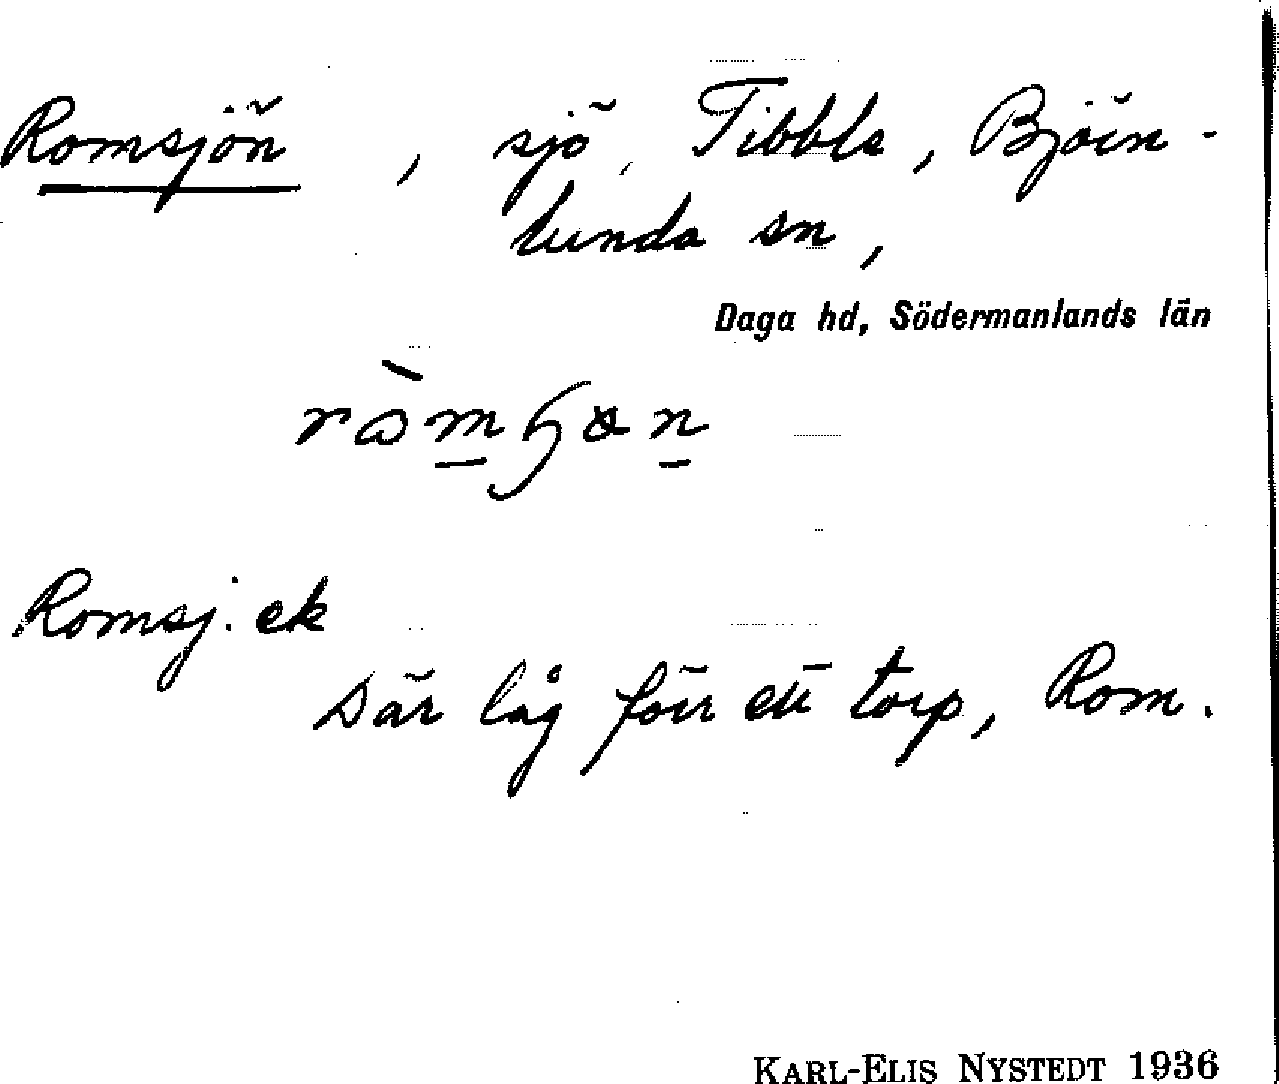 Romsjön, sjö, Tibble, Björn-
lunda sn,
Daga hd, Södermanlands län
Romsj. ek
Där låg förr ett torp, Rom.
KARL-ELIS NYSTEDT 1936